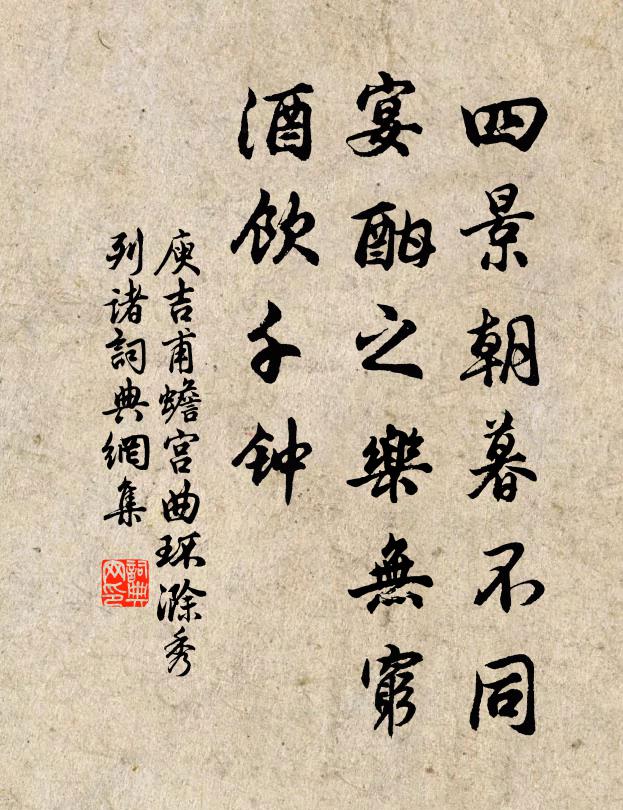 四景朝暮不同
宴酣之樂無窮
酒饮千钟
庾吉甫蟾宫曲环滁秀
列诸詞典網集
詞典
网印